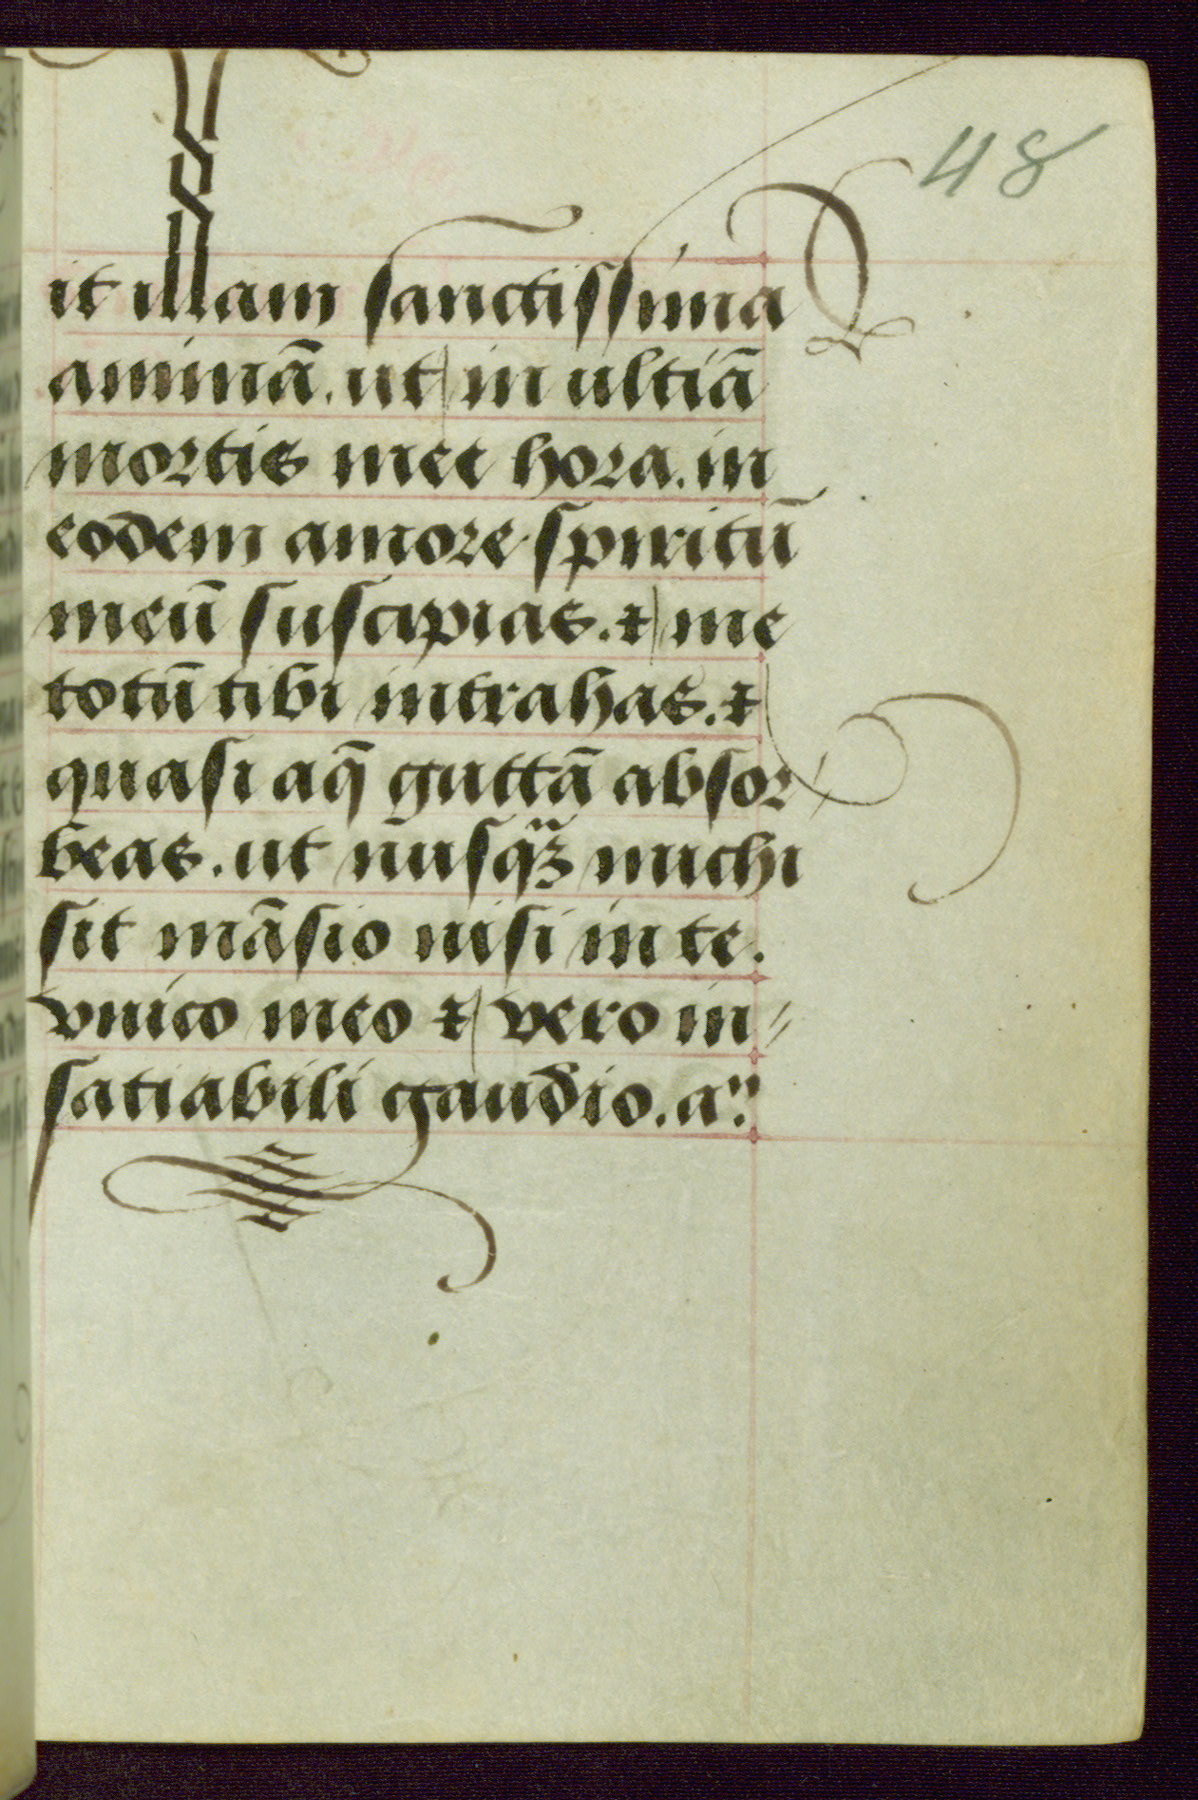 48
it illam sanctissima
animinā. ut in ultiā
mortis mee hora. in
eodem amore spiritū
meū suscipias. & me
totū tibi intrahas. &
quasi aq̄ guttā absor
beas. ut nusq̃ꝫ michi
sit māsio nisi in te.
vnico meo & vero in〃
satiabili gaudio. a